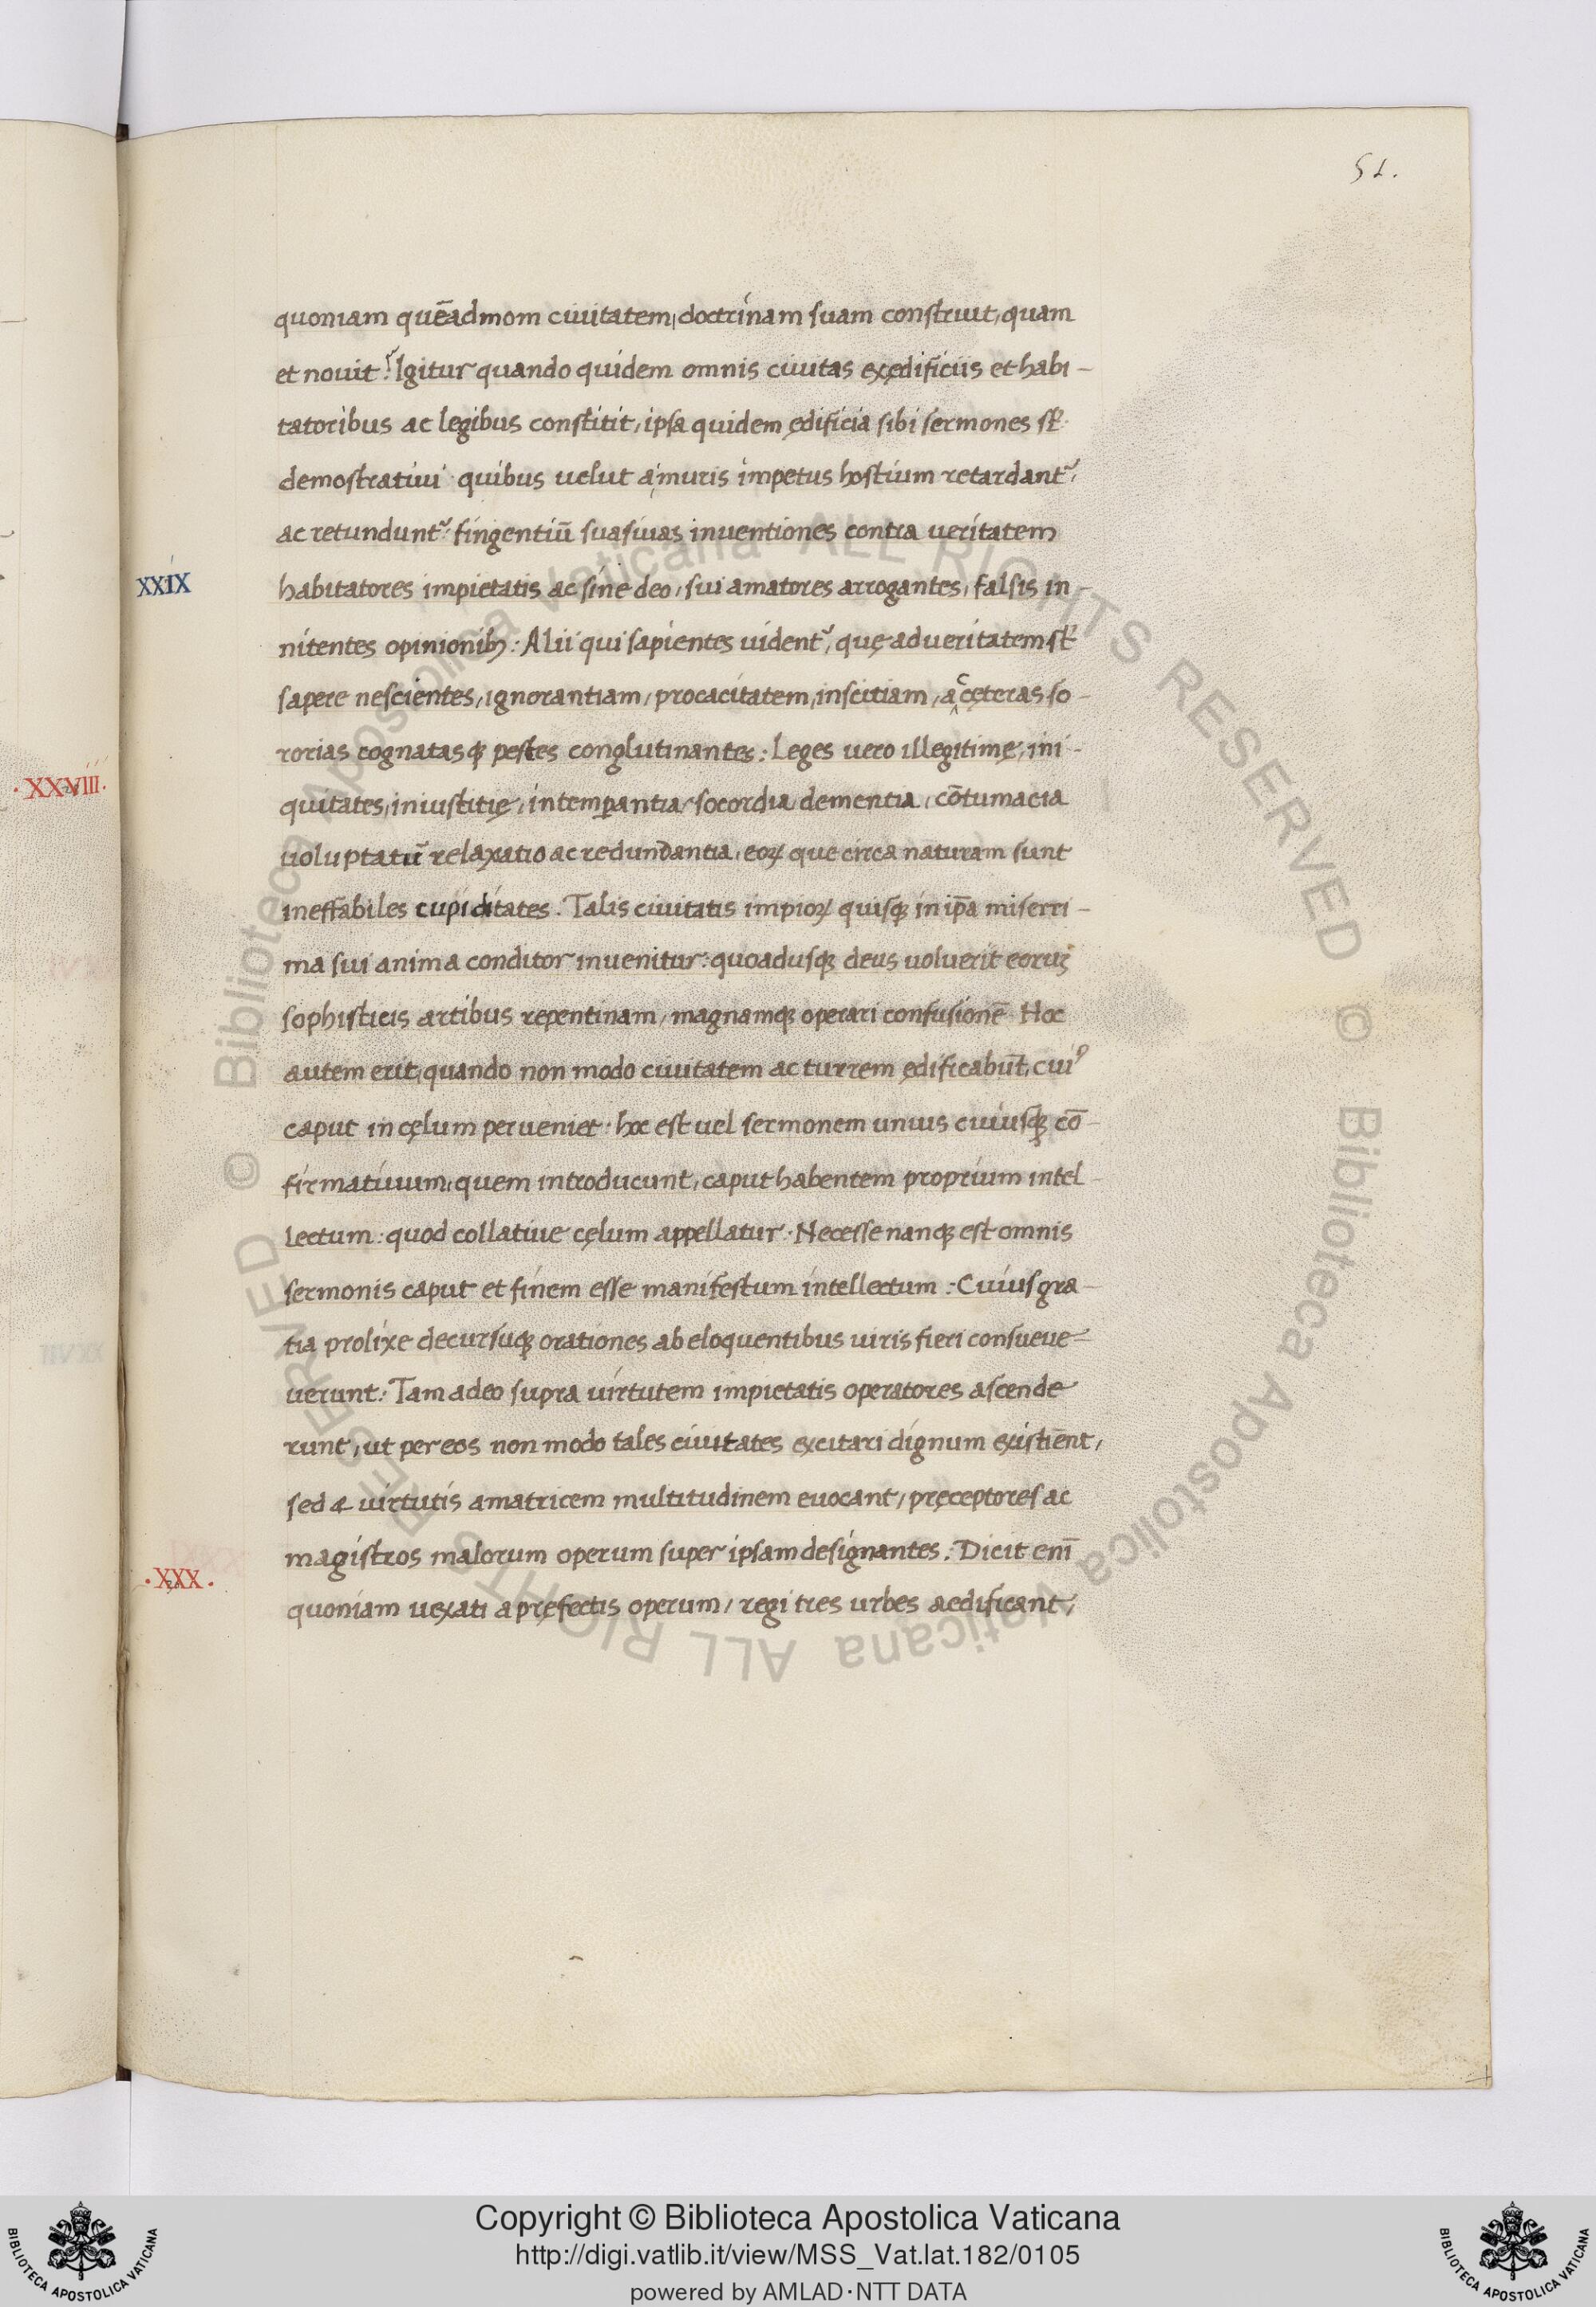 51.
quoniam quēadmom ciuitatem, doctrinam suam construit, quam
et nouit? Igitur quando quidem omnis ciuitas exędificiis et habi-
tatoribus ac legibus constitit, ipsa quidem ędificia sibi sermones st̄
demostratiui quibus uelut a muris impetus hostium retardant᷑,
ac retundunt᷑: fingentiū suasiuas inuentiones contra ueritatem
XXIX
habitatores impietatis ac sine deo, sui amatores arrogantes, falsis in-
nitentes opinionibꝫ: Alii qui sapientes uident᷑, quę ad ueritatem st̄
sapere nescientes, ignorantiam, procacitatem, inscitiam, ac cęteras so-
rorias cognatasqꝫ pestes conglutinantes: Leges uero illegitimę, ini-
XXVIII.
quitates, iniustitię, intemꝑantia, socordia, dementia, cōtumacia
uoluptatū relaxatio ac redundantia, eoꝝ que circa naturam sunt
ineffabiles cupiditates. Talis ciuitatis impioꝝ quisqꝫ in ip̄a miserri-
ma sui anima conditor inuenitur: quoadusqꝫ deus uoluerit eorum
sophisticis artibus repentinam, magnamqꝫ operari confusionē Hoc
autem erit, quando non modo ciuitatem ac turrem ędificabūt, cuiꝰ
caput in cęlum perueniet: hoc est uel sermonem unius cuiusqꝫ cō-
firmatiuum, quem introducunt, caput habentem proprium intel-
lectum: quod collatiue cęlum appellatur. Necesse nanqꝫ est omnis
sermonis caput et finem esse manifestum intellectum: Cuius gra-
tia prolixe decursuqꝫ orationes ab eloquentibus uiris fieri consueue-
uerunt: Tam adeo supra uirtutem impietatis operatores ascende
runt, ut per eos non modo tales ciuitates excitari dignum existiēnt,
sed & uirtutis amatricem multitudinem euocant, pręceptores ac
magistros malorum operum super ipsam designantes: Dicit enī
.XXX.
quoniam uexati a pręfectis operum, regi tres urbes aedificant,
Copyright © Biblioteca Apostolica Vaticana
http://digi.vatlib.it/view/MSS_Vat.lat.182/0105
powered by AMLAD·NTT DATA